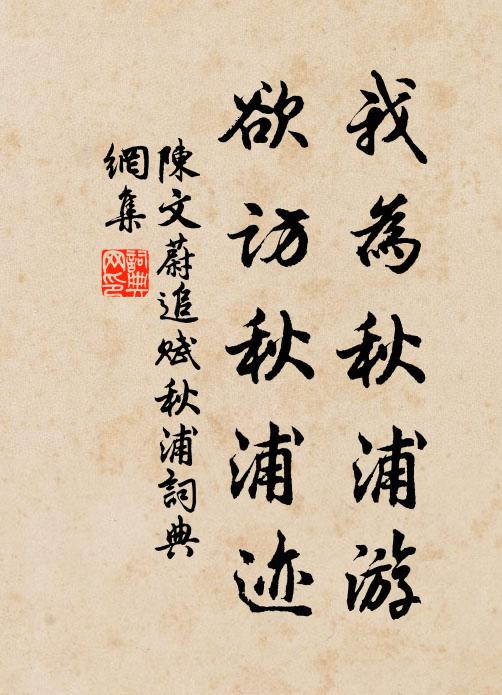 我為秋浦游
欲訪秋浦迹
陳文蔚追賦秋浦詞典
網集
詞典網印